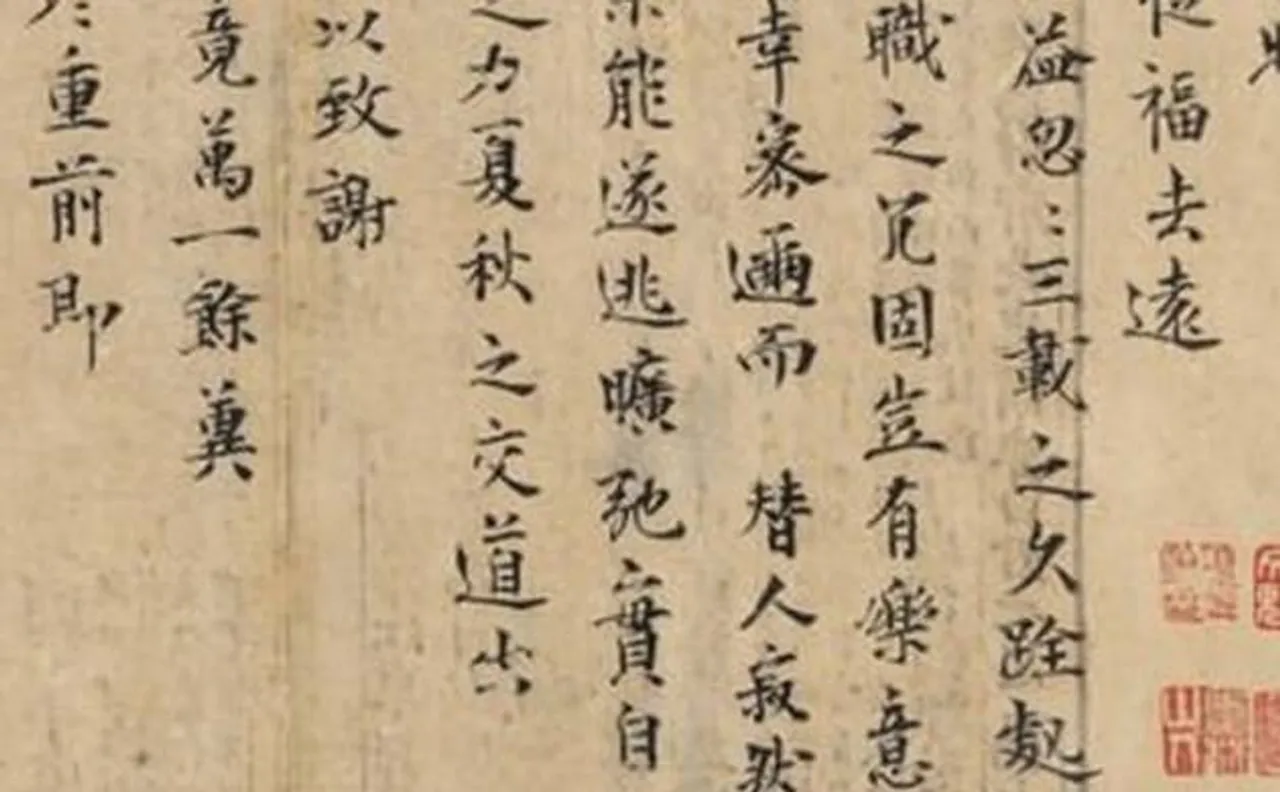 福去遠
益忽〻三載之久跧
職之冗固豈有樂意
幸密邇而 替人寂然
能遂逃曠弛實自
之力夏秋之交道出
以致謝
竟萬一餘冀
重前即